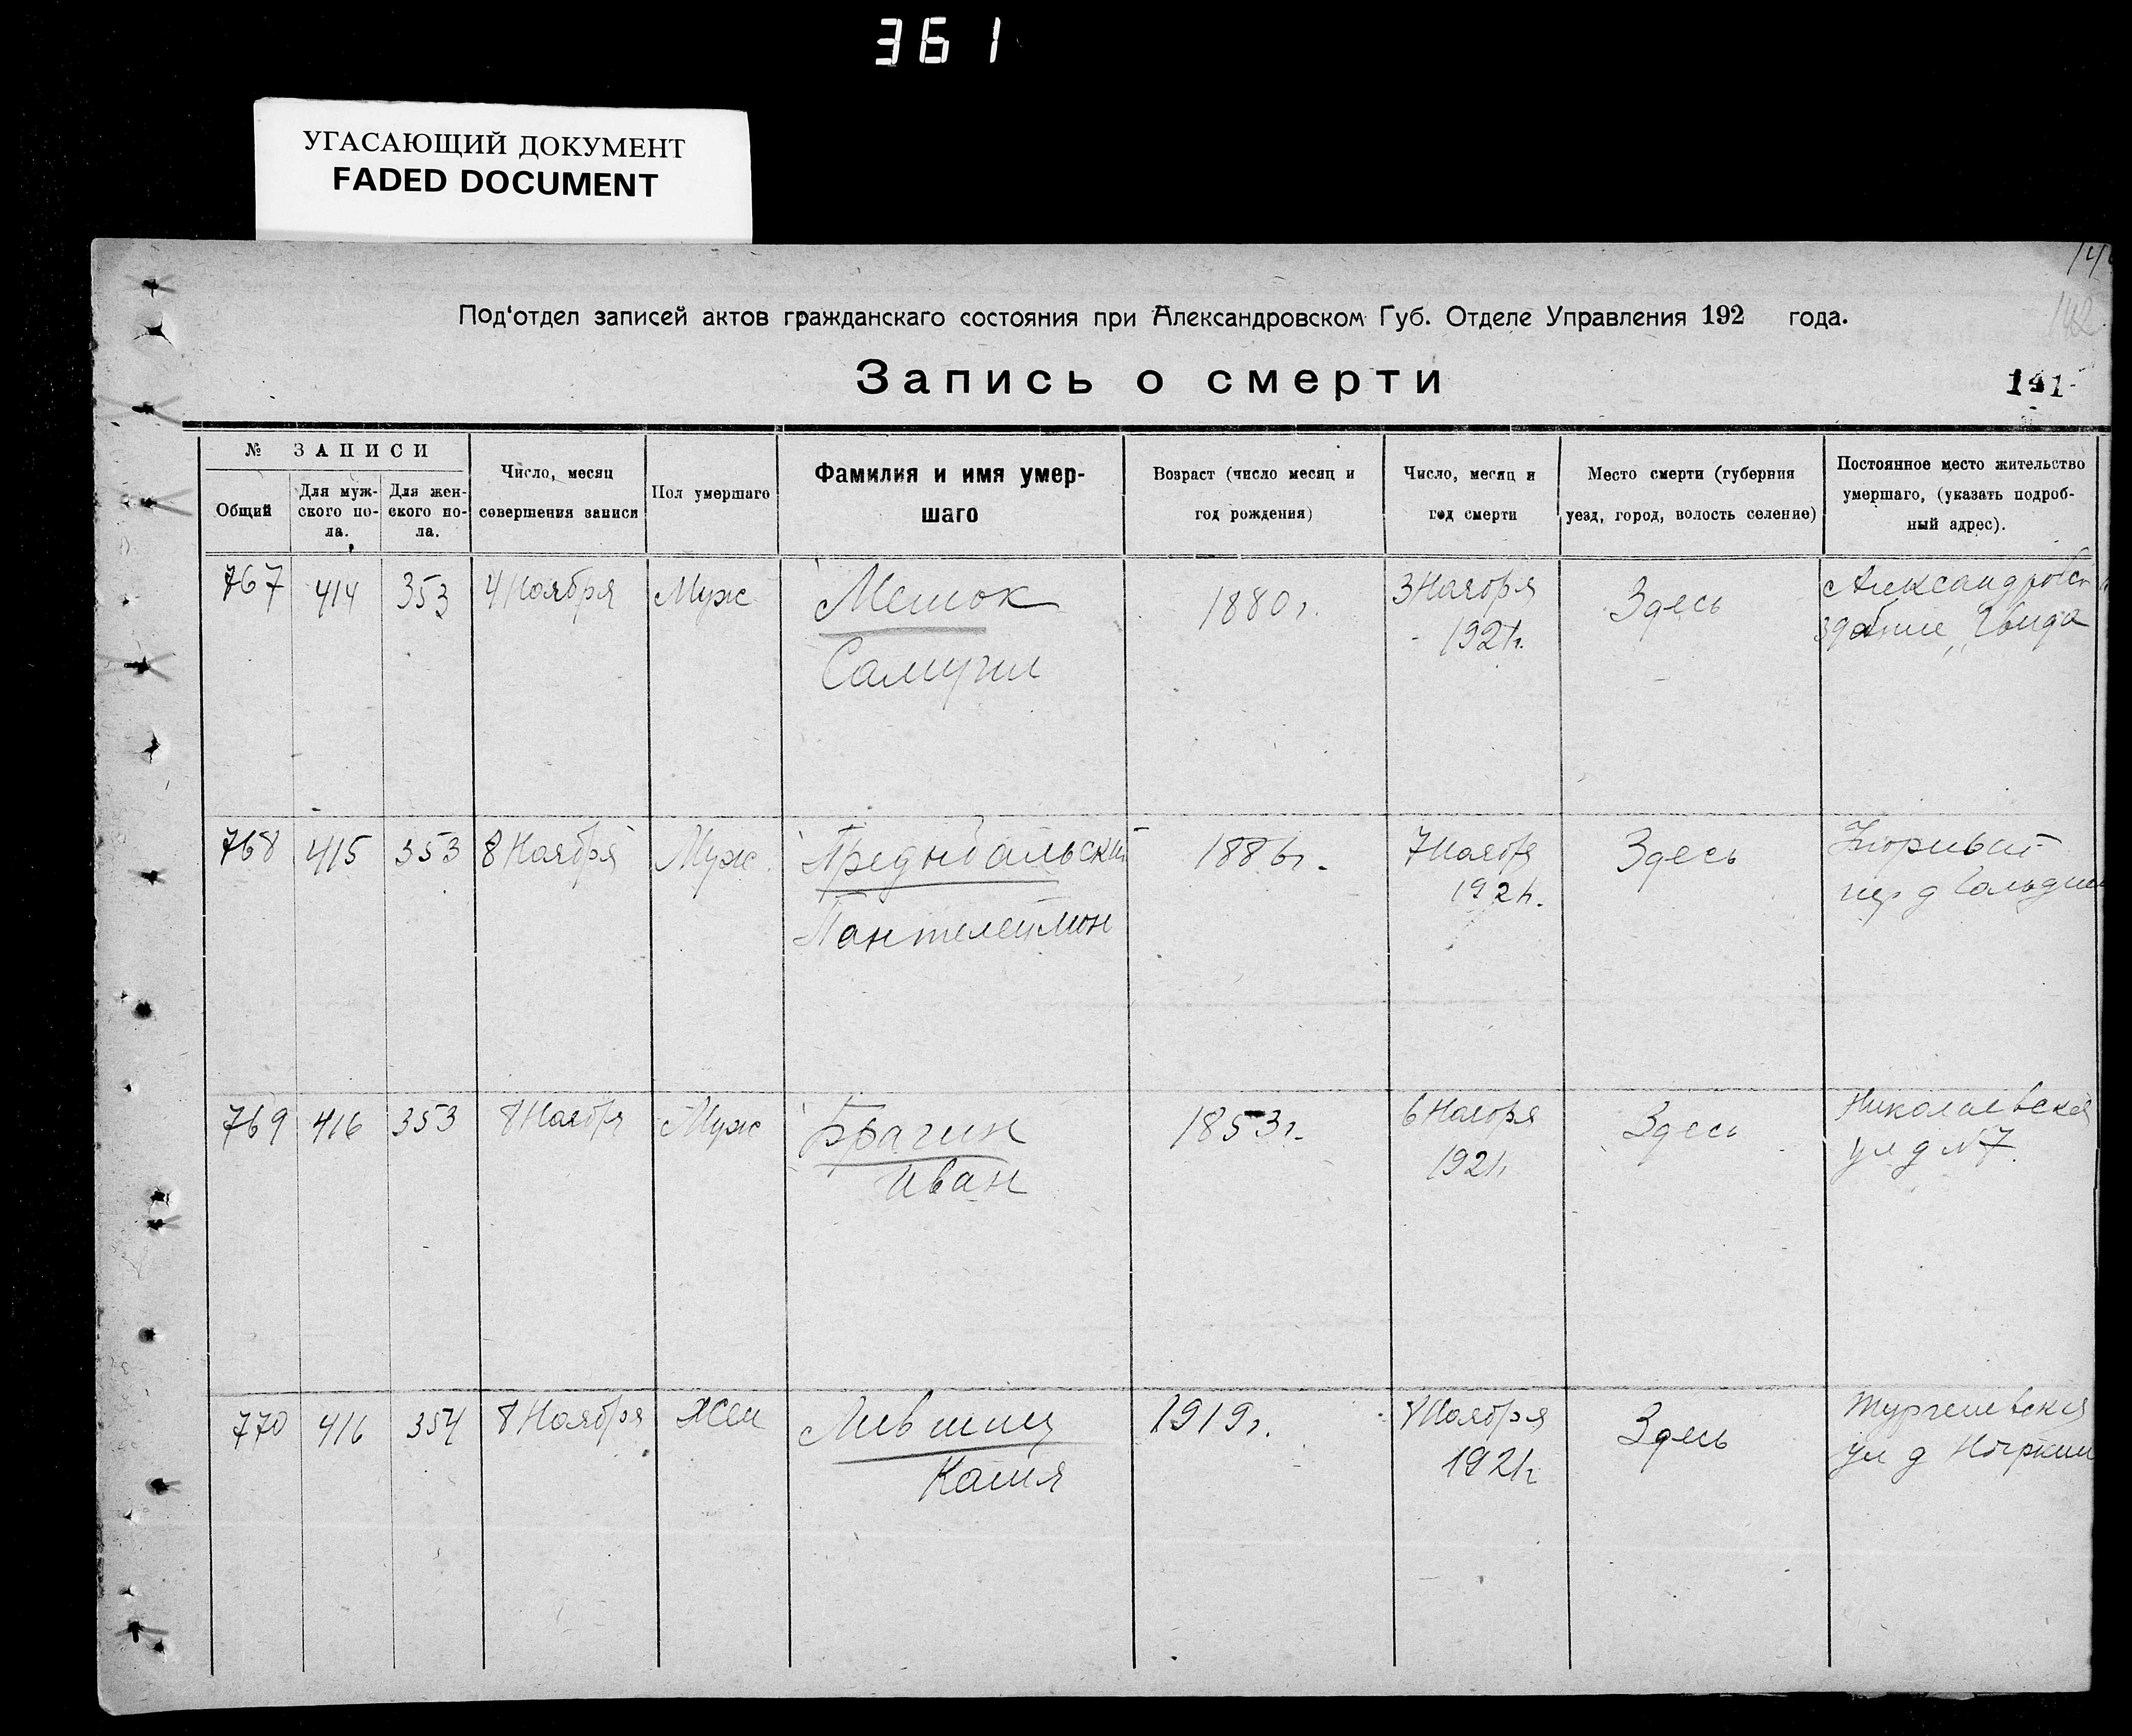 361
УГАСАЮЩИЙ ДОКУМЕНТ
FADED DOCUMENT
142
Под'отдел записей актов гражданскаго состояния при Александровском Губ. Отделе Управления 192 года.
Запись о смерти
141
№ ЗАПИСИ
Общий
Для муж-
ского по-
ла.
Для жен-
ского по-
ла.
Число, месяц
совершения записи
Пол умершаго
Фамилия и имя умер-
шаго
Возраст (число месяц и
год рождения)
Число, месяц и
год смерти
Место смерти (губерния
уезд, город, волость селение)
Постоянное место жительство
умершаго, (указать подроб-
ный адрес).
767 414 353 4 Ноября Муж Мешок 1880г. 3 Ноября Здесь Александровск
Самуил 1921г. здание
768 415 353 8 Ноября Муж. 1886г. 7 Ноября Здесь
Пантелеймон 1921г. пер д
769 416 353 8 Ноябр Муж Брагин 1853г. 6 Ноября Здесь Николаевская
Иван 1921г. ул д №7
770 416 354 8 Ноября Жен Лившиц 1919г. 7 Ноября Здесь Тургеневская
1921г. ул д